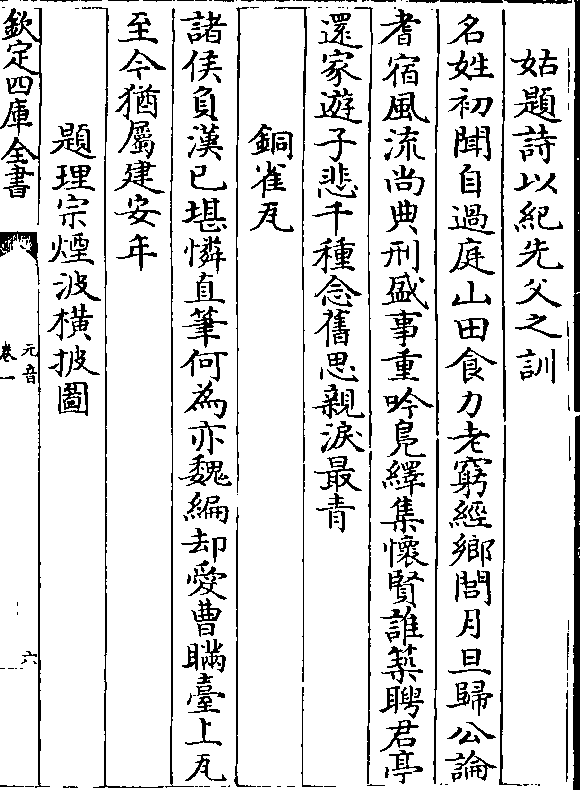 姑題詩以紀先父之訓
名姓初聞自過庭山田食力老窮經鄉閭月旦歸公論
耆宿風流尚典刑盛事重吟鳧繹集懷賢誰築聘君亭
還家遊子悲千種念舊思親淚最青
銅雀瓦
諸侯負漢已堪憐直筆何為亦魏編却愛曹瞞臺上瓦
至今猶屬建安年
題理宗煙波橫披圖
欽定四庫全書
元音
卷一
六